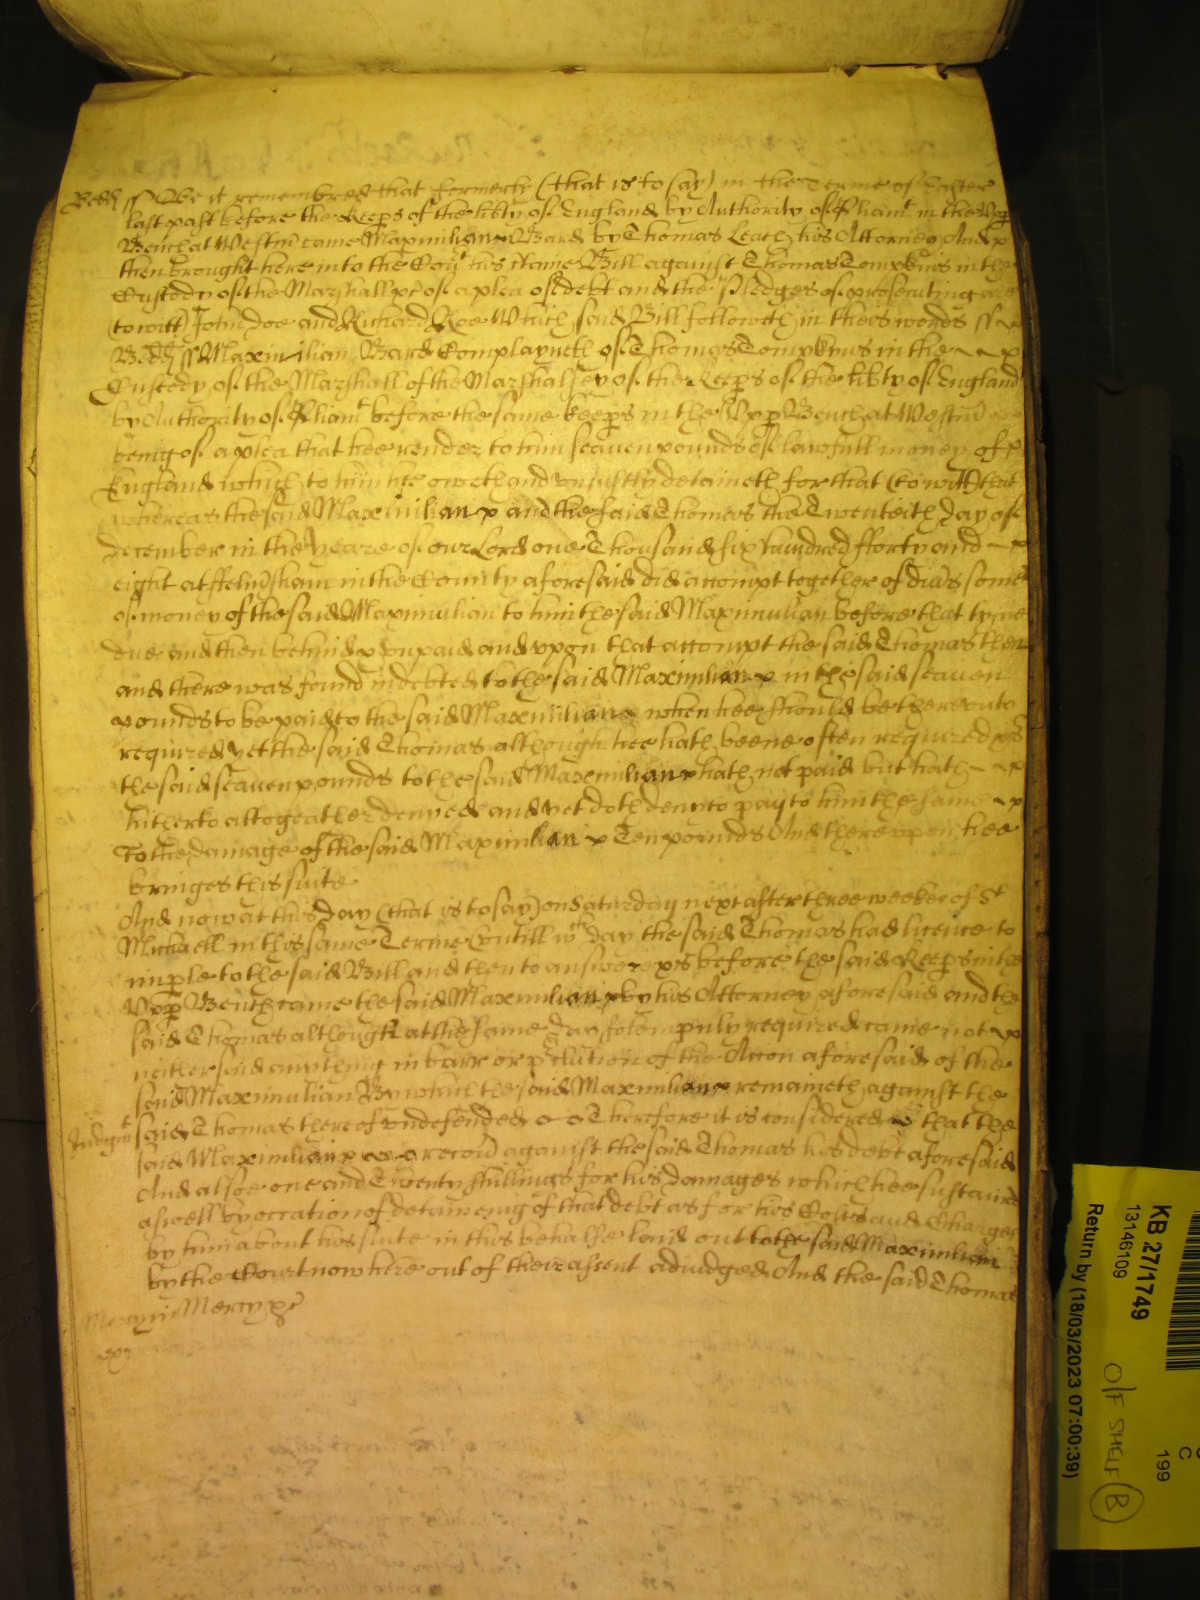 Bedd ss Be it remembred that formerly (that is to say) in the Terme of Easter
last past before the Keeps of the libty of England by Authority of Parliamt in the Upp
Bench at Westm came Maximilian Bard by Thomas Leach his Attorney And
then brought here into the Court his certaine Bill against Thomas Tompkyns in the
Custody of the Marshall &c of a plea of debt and the Pledges of prosecuting are
(to witt) John Doe and Richard Roe Which said Bill followeth in theis words ss
Bedd ss Maximilian Bard Complayneth of Thomas Tompkyns in the
Custody of the Marshall of the Marshalsey of the Keeps of the libty of England
by Authority of Parliamt before the same keeps in the Upp Bench at Westm
being of a plea that hee render to him seaven pounds of lawfull money of
England which to him hee oweth and unjustly detaineth for that (to witt) that
whereas the said Maximilian and the said Thomas the Twenteith day of
december in the yeare of our Lord one Thousand six hundred fforty and
eight at ffelmsham in the County aforesaid did accompt together of divs somes
of money of the said Maximilian to him the said Maximilian before that tyme
due and then behind & unpaid and upon that accompt the said Thomas then
and there was found indebted to the said Maximilian in the said seaven
pounds to be paid to the said Maximilian when hee should be thereunto
required yet the said Thomas although hee hath beene often required &c
the said seaven pounds to the said Maximilian hath not paid but hath
hitherto altogeather denyed and yet doth deny to pay to him the same
To the damage of the said Maximilian Ten pounds And thereupon hee
bringes this suite
And now at this day (that is to say) on Saturday next after three weekes of St
Michaell in this same Terme (untill wch day the said Thomas had licence to
imple to the said Bill and then to answere &c before the said Keeps in the
Upp Bench came the said Maximilian by his Attorney aforesaid and the
said Thomas although at the same day solempnly required came not
neither said anything in barr or pclution of the Accon aforesaid of the
said Maximilian By which the said Maximilian remaineth against the
Judgmt said Thomas thereof undefended &c Therefore it is considered that the
said Maximilian recov against the said Thomas his debt aforesaid
And alsoe one and Twenty shillings for his damages which hee sustained
aswell by occation of deteineing of that debt as for his Costs and Charges
by him about his suite in this behalfe laid out to the said Maximilian
by the Court now here out of theire assent adjudged And the said Thomas
Mercy in Mercy &c
KB 27/1749
13146109
Return by (18/03/2023 07:00:39)
C
199
O/F SHELF
B